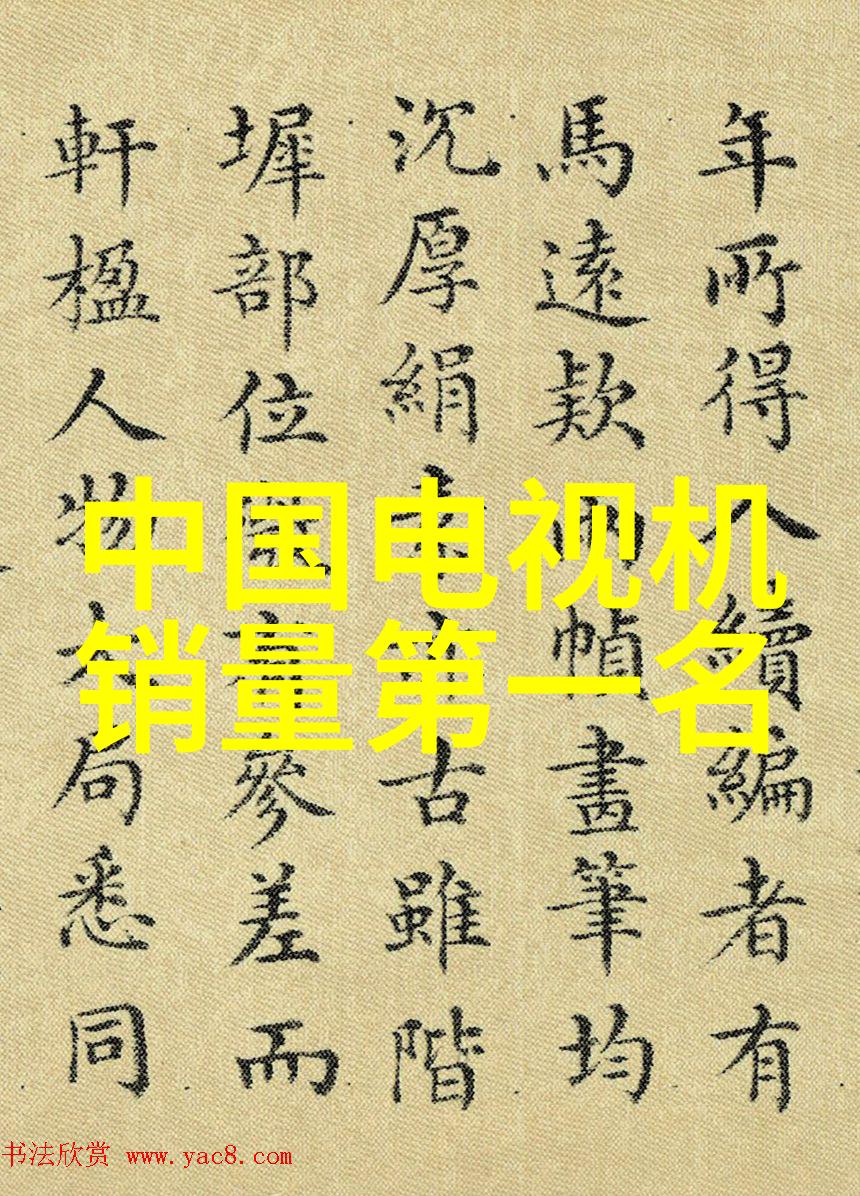 年所得入續編者有
馬遠款兩幀畫筆均
沉厚絹素古雖階
墀部位參差而
軒楹人物大局悉同
中国电视机
销量第一名
书法欣赏 www.yac8.com